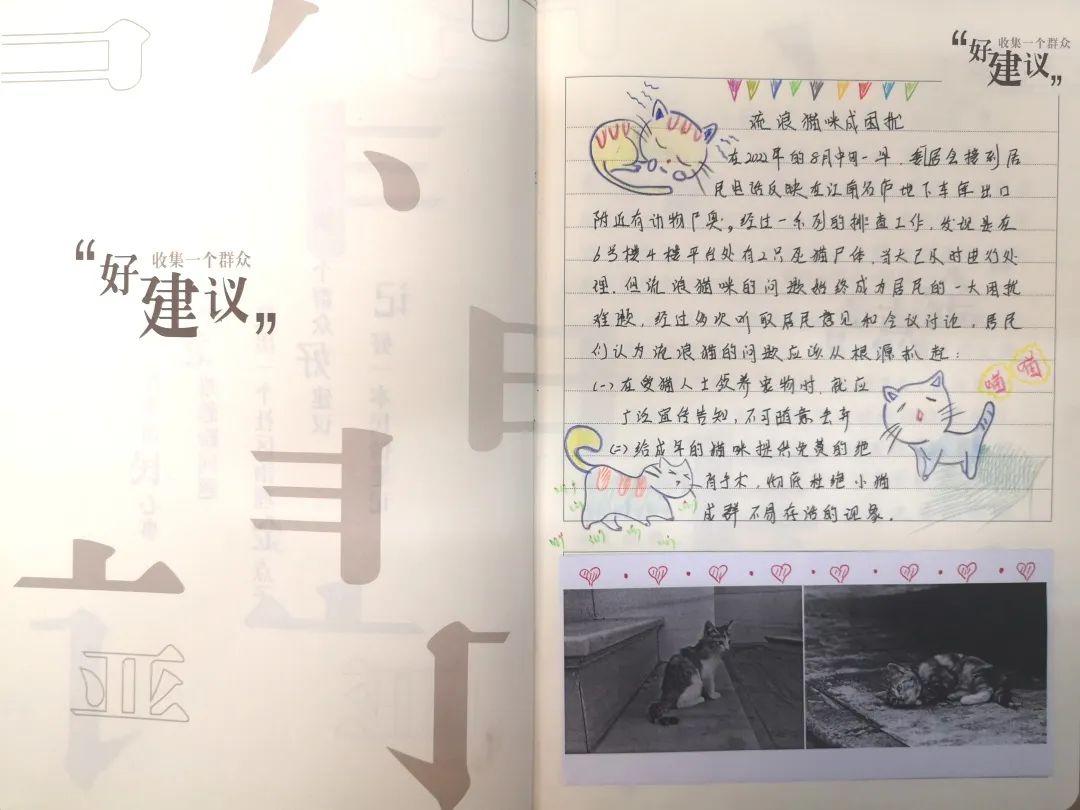 “好建议”
收集一个群众
“好建议”
收集一个群众
流浪猫咪成困扰
在2022年的8月中旬一早，居委会接到居
民电话反映在江南名庐地下车库出口
附近有动物尸臭。经过一系列的排查工作，发现是在
6号楼4楼平台处有2只死猫尸体，当天已及时进行处
理。但流浪猫咪的问题始终成为居民的一大困扰
难题，经过多次听取居民意见和会议讨论，居民
们认为流浪猫的问题应该从根源抓起：
(一)在爱猫人士领养宠物时，就应
广泛宣传告知，不可随意丢弃
(二)给成年的猫咪提供免费的绝
育手术，彻底杜绝小猫
成群不易存活的现象。
喵 喵